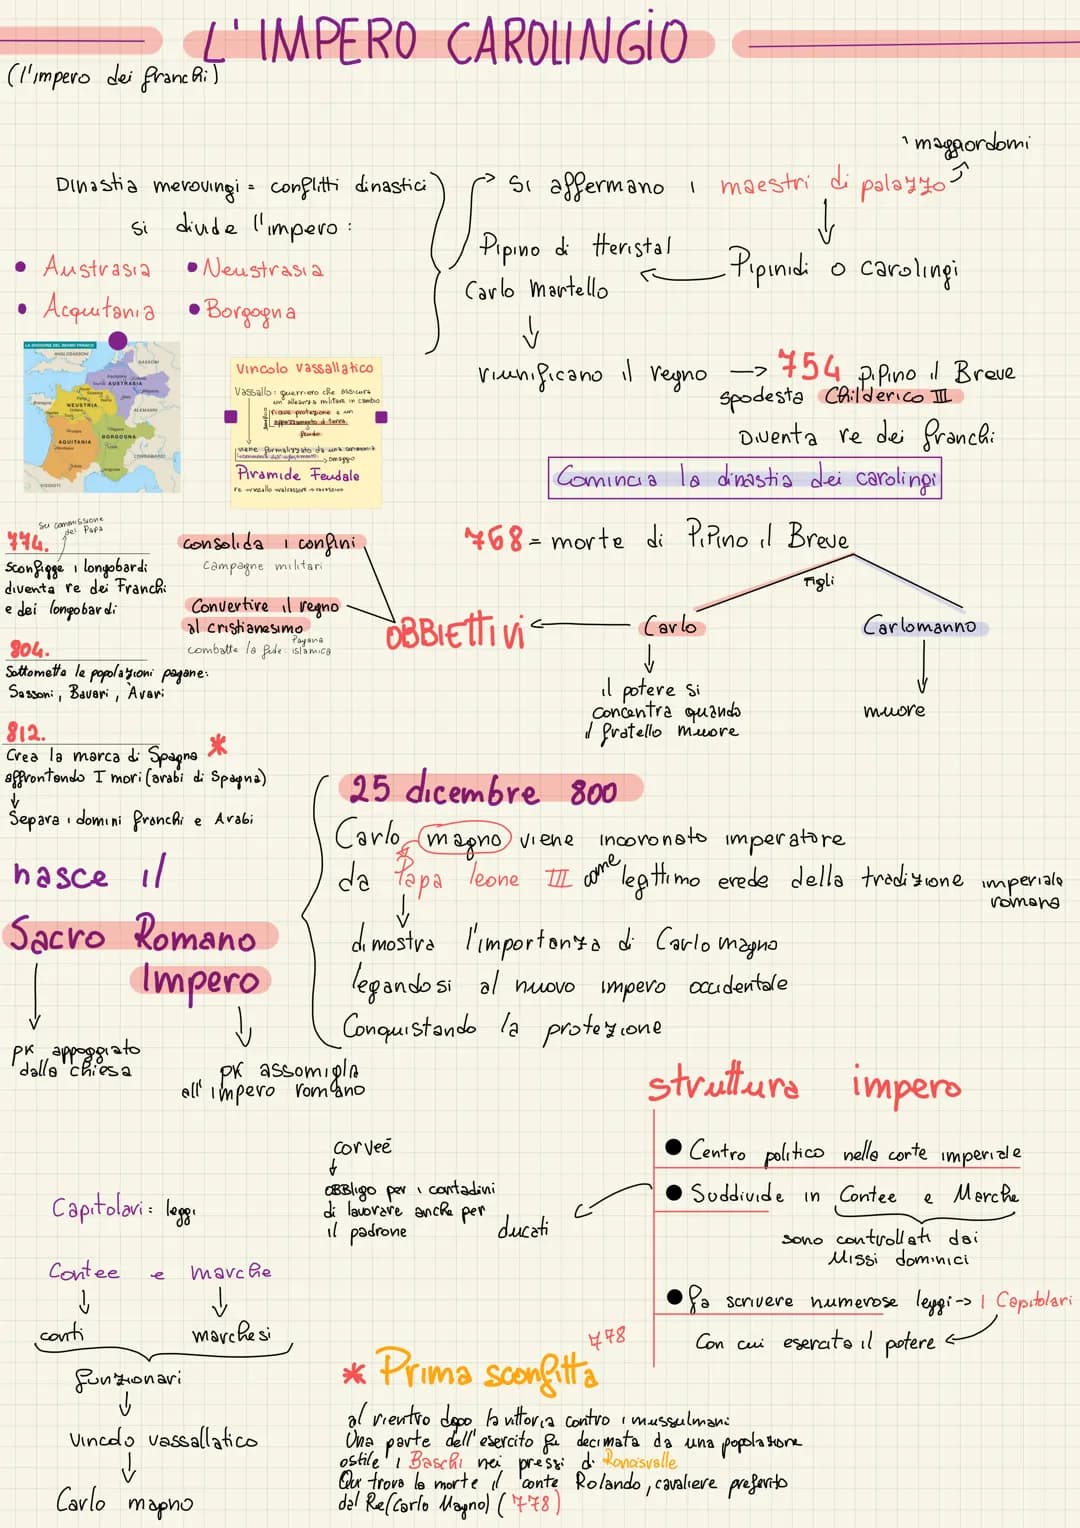 L'IMPERO CAROLINGIO
(l'impero dei franchi)
Dinastia merovingi = conflitti dinastici
si divide l'impero :
• Austrasia • Neustrasia
• Acquitania • Borgogna
Si affermano i maestri di palazzo
maggiordomi
Pipinidi o carolingi
Pipino di Heristal
Carlo Martello
riunificano il regno
754 Pipino il Breve
spodesta Childerico III
Diventa re dei franchi
Comincia la dinastia dei carolingi
AUSTRASIA
NEUSTRIA
AQUITANIA
BORGOGNA
ALEMANNI
Vincolo vassallatico
Vassallo : guerriero che assicura
un'alleanza militare in cambio
riceve protezione e un
appezzamento di terra
feudo
viene formalizzato da una cerimonia
omaggio
Piramide Feudale
768 = morte di Pipino il Breve
Figli
Carlo
Carlomanno
il potere si
concentra quando
il fratello muore
muore
OBBIETTIVI
consolida i confini
campagne militari
Convertire il regno
al cristianesimo
combatte la fede: Pagana
islamica
774.
Su commissione
del Papa
Sconfigge i longobardi
diventa re dei Franchi
e dei longobardi
804.
Sottomette le popolazioni pagane:
Sassoni, Bavari, Avari
812.
Crea la marca di Spagna *
affrontando I mori (arabi di Spagna)
Separa i domini franchi e Arabi
25 dicembre 800
Carlo magno viene incoronato imperatore
da Papa leone III come legittimo erede della tradizione imperiale
romana
dimostra l'importanza di Carlo magno
legandosi al nuovo impero occidentale
Conquistando la protezione
nasce il
Sacro Romano
Impero
pk appoggiato
dalla chiesa
pk assomiglia
all'impero romano
struttura impero
• Centro politico nella corte imperiale
• Suddivide in Contee e Marche
sono controllati dai
Missi dominici
ducati
• fa scrivere numerose leggi -> I Capitolari
Con cui esercita il potere
corveé
OBBligo per i contadini
di lavorare anche per
il padrone
Capitolari : leggi
Contee e marche
conti
marchesi
funzionari
Vincolo vassallatico
Carlo magno
778
* Prima sconfitta
al rientro dopo la vittoria contro i mussulmani
Una parte dell'esercito fu decimata da una popolazione
ostile i Baschi nei pressi di Roncisvalle
Qui trova la morte il conte Rolando, cavaliere preferito
dal Re (Carlo Magno) (778)